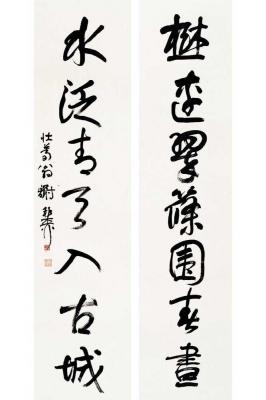 樾連翠篠圍春晝
水泛青天入古城
壯暮翁謝稚柳